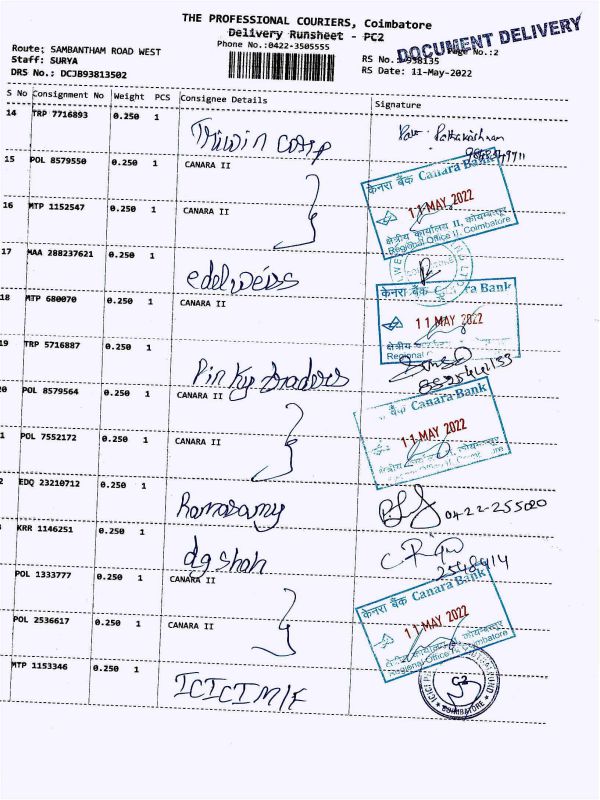 THE PROFESSIONAL COURIERS, Coimbatore
Delivery Runsheet - PC2
Phone No.:0422-3505555
DOCUMENT DELIVERY
Page No.:2
Route; SAMBANTHAM ROAD WEST
Staff: SURYA
DRS No.: DCJB93813502
RS No. 938135
RS Date: 11-May-2022
S No Consignment No Weight PCS Consignee Details Signature
14 TRP 7716893 0.250 1
15 POL 8579550 0.250 1 CANARA II
केनरा बैंक Canara Bank
11 MAY 2022
क्षेत्रीय कार्यालय II, कोयम्बत्तूर
Regional Office II, Coimbatore
16 MTP 1152547 0.250 1 CANARA II
17 MAA 288237621 0.250 1 edelweiss
18 MTP 680070 0.250 1 CANARA II
केनरा बैंक Canara Bank
11 MAY 2022
क्षेत्रीय
Regional
19 TRP 5716887 0.250 1 Pinky traders
0 POL 8579564 0.250 1 CANARA II
बैंक Canara Bank
11 MAY 2022
1 POL 7552172 0.250 1 CANARA II
2 EDQ 23210712 0.250 1 Ramasamy
0422-255020
KRR 1146251 0.250 1 dg shah
2548414
POL 1333777 0.250 1 CANARA II
केनरा बैंक Canara Bank
11 MAY 2022
क्षेत्रीय कार्यालय II, कोयम्बत्तूर
Regional Office II, Coimbatore
POL 2536617 0.250 1 CANARA II
MTP 1153346 0.250 1 ICICI M/F
COIMBATORE